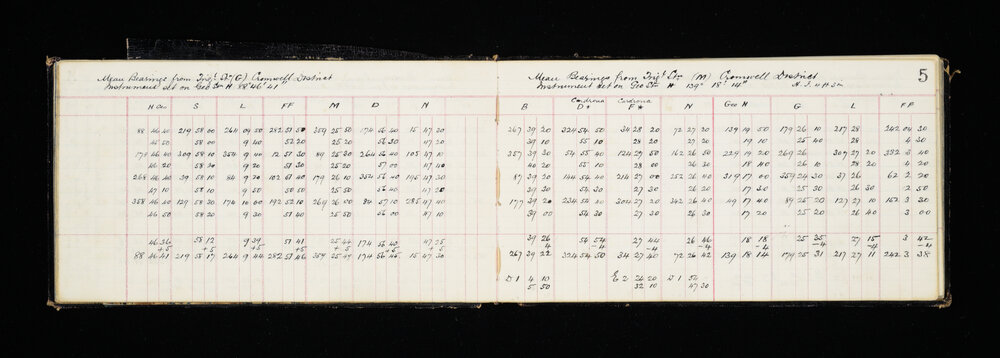 Mean Bearings from Trig. Stn (G) Cromwell District
Instrument set on Geo Stn H 88° 46' 41"
H Geo S L FF M D N
88 46 40 219 58 00 264 09 50 282 51 50 359 25 50 174 56 40 15 47 20
45 50 58 00 9 40 52 20 25 20 56 30 47 20
178 46 40 309 58 10 354 9 40 12 51 30 89 25 30 264 56 40 105 47 10
46 20 58 20 9 20 51 30 25 20 57 10 47 40
268 46 40 39 58 10 84 9 20 102 51 40 179 26 10 354 56 40 195 47 30
47 10 58 10 9 50 50 50 25 50 56 40 47 20
358 46 40 129 58 30 174 10 00 192 52 10 269 26 00 84 57 10 285 47 40
46 50 58 20 9 30 51 40 25 50 56 00 47 10
46 36 58 12 9 39 51 41 25 44 174 56 40 47 25
+5 +5 +5 +5 +5 +5 +5
88 46 41 219 58 17 264 9 44 282 51 46 359 25 49 174 56 45 15 47 30
5
Mean Bearings from Trig. Stn (M) Cromwell District
Instrument set on Geo Stn H 139° 18' 14"
B Cardrona D Cardrona F N Geo H G L FF
267 39 20 324 54 50 34 28 20 72 27 20 139 19 50 179 26 10 217 28 242 04 30
39 10 55 10 28 20 27 20 19 10 25 40 28 4 30
357 39 30 54 55 40 124 27 50 162 26 50 229 19 20 269 26 307 27 20 332 3 40
40 20 55 10 28 00 26 30 18 40 26 10 28 20 4 20
87 39 20 144 54 40 214 27 00 252 26 40 319 17 00 359 24 30 37 26 62 2 20
39 30 54 30 27 30 26 20 17 30 25 30 26 30 2 50
177 39 20 234 54 40 304 27 20 342 26 40 49 17 40 89 25 20 127 27 10 152 3 30
39 00 54 30 27 30 26 30 17 20 25 20 26 40 3 00
39 26 54 54 27 44 26 46 18 18 25 35 27 15 3 42
-4 -4 -4 -4 -4 -4 -4 -4
267 39 22 324 54 50 34 27 40 72 26 42 139 18 14 179 25 31 217 27 11 242 3 38
D 1 4 10 E 2 26 20 D 1 54
5 50 32 10 47 30